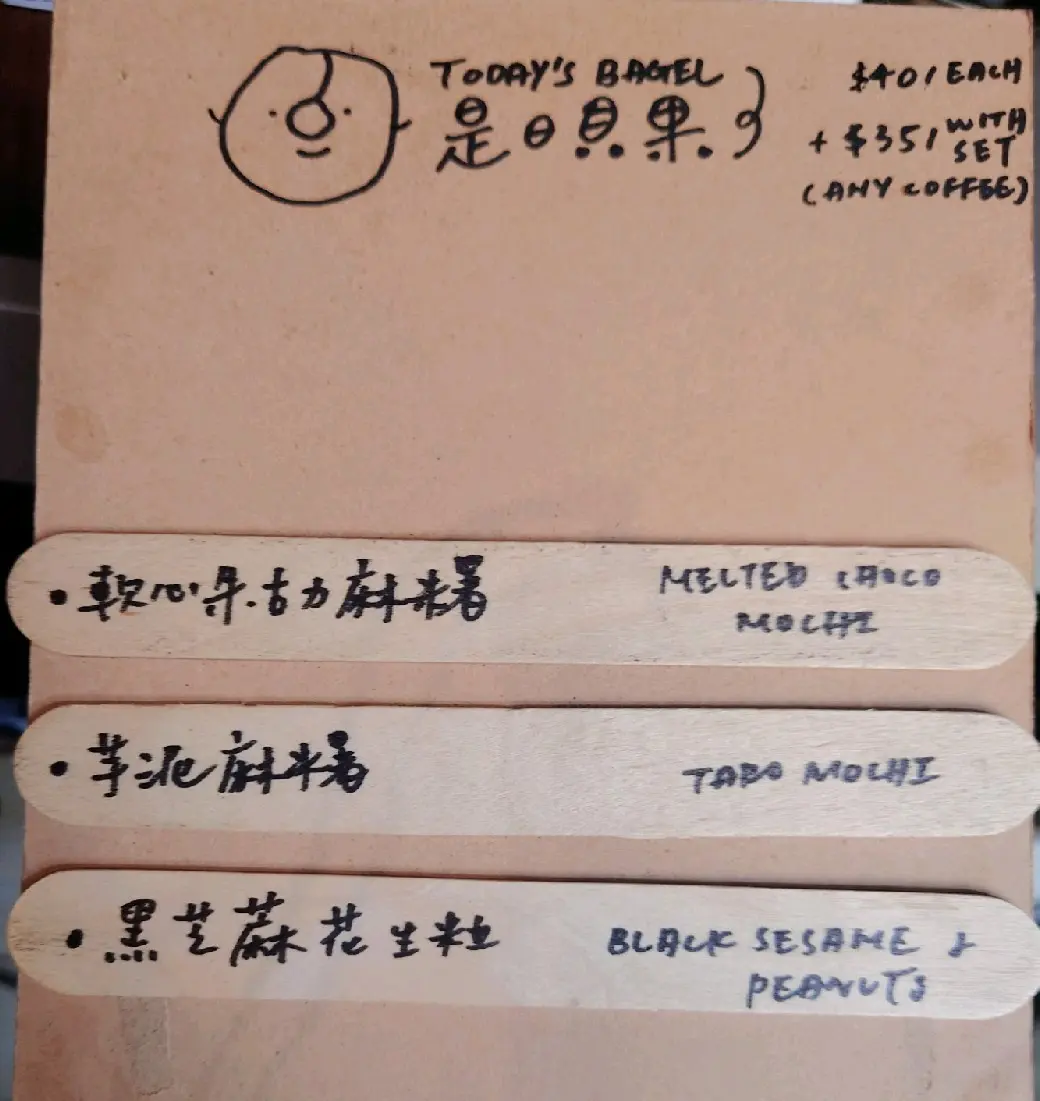 TODAY'S BAGEL
是日貝果
$40/EACH
+ $35/ WITH SET
(ANY COFFEE)
• 軟心朱古力麻糬
MELTED CHOCO
MOCHI
• 芋泥麻糬
TARO MOCHI
• 黑芝蔴花生粒
BLACK SESAME &
PEANUTS